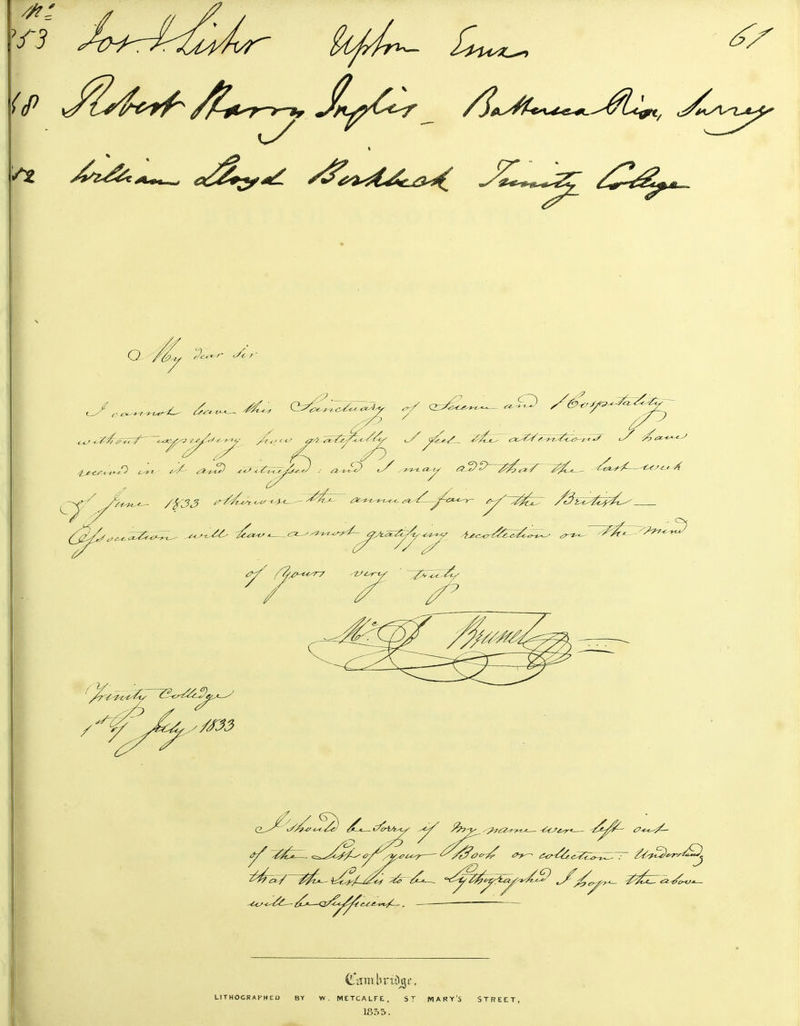 No.
253 Jos. J. Lister Upton Essex 61
Robert Harry Inglis _ Battersea Rise, Surrey
52 William Lloyd Birkbeck Trinity College
My dear Sir
I cannot leave this Sanctuary of Science and Hospitality
without expressing how gratefully I feel the attentions I have
received in it and witnessed: and I may add that the last week
of June 1833 otherwise the annual fair of the British
Association will leave a most gratifying recollection on the mind
of Yours very truly
Brunel
Trinity Colledge
1st of July 1833
I should be Sorry if my name were left out
of the List of your Book or collection: Understanding
that the List is to be Lythographed I hope the above
will be Sufficient.
Cambridge.
LITHOGRAPHED BY W. METCALFE, ST MARY'S STREET,
1833.